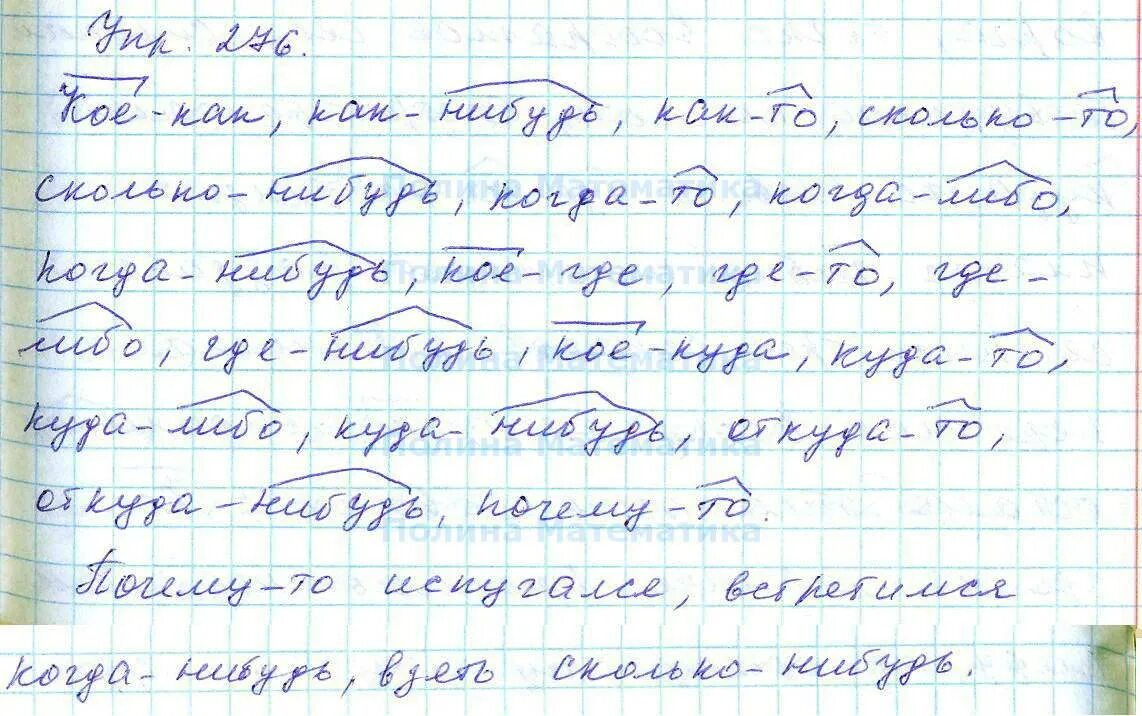 Упр. 276.
Кое-как, как-нибудь, как-то, сколько-то,
сколько-нибудь, когда-то, когда-либо,
когда-нибудь, кое-где, где-то, где-
либо, где-нибудь, кое-куда, куда-то,
куда-либо, куда-нибудь, откуда-то,
откуда-нибудь, почему-то.
Почему-то испугался, встретимся
когда-нибудь, взять сколько-нибудь.
Полина Математика
Полина Математика
Полина Математика
Полина Математика
Полина Математика